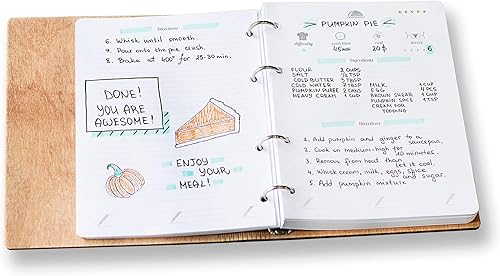 Directions
6. Whisk until smooth.
7. Pour onto the pie crush.
8. Bake at 400° for 25-30 min.
DONE!
YOU ARE
AWESOME!
ENJOY
YOUR
MEAL!
PUMPKIN PIE
difficulty
45min
20$
serves
6
Ingredients
FLOUR 2 CUPS
SALT 1/2 TSP
COLD BUTTER 3 TBSP
COLD WATER 7 TBSP
PUMPKIN PUREE 2 CANS
HEAVY CREAM 1 CUP
MILK 1 CUP
EGG 4 PCS
BROWN SUGAR 1 CUP
PUMPKIN SPICE 1 TSP
CREAM FOR
Directions
1. Add pumpkin and ginger to a
saucepan.
2. Cook on medium-high for
10 minutes.
3. Remove from heat than
let it cool.
4. Whisk cream, milk, eggs, spice
and sugar.
5. Add pumpkin mixture